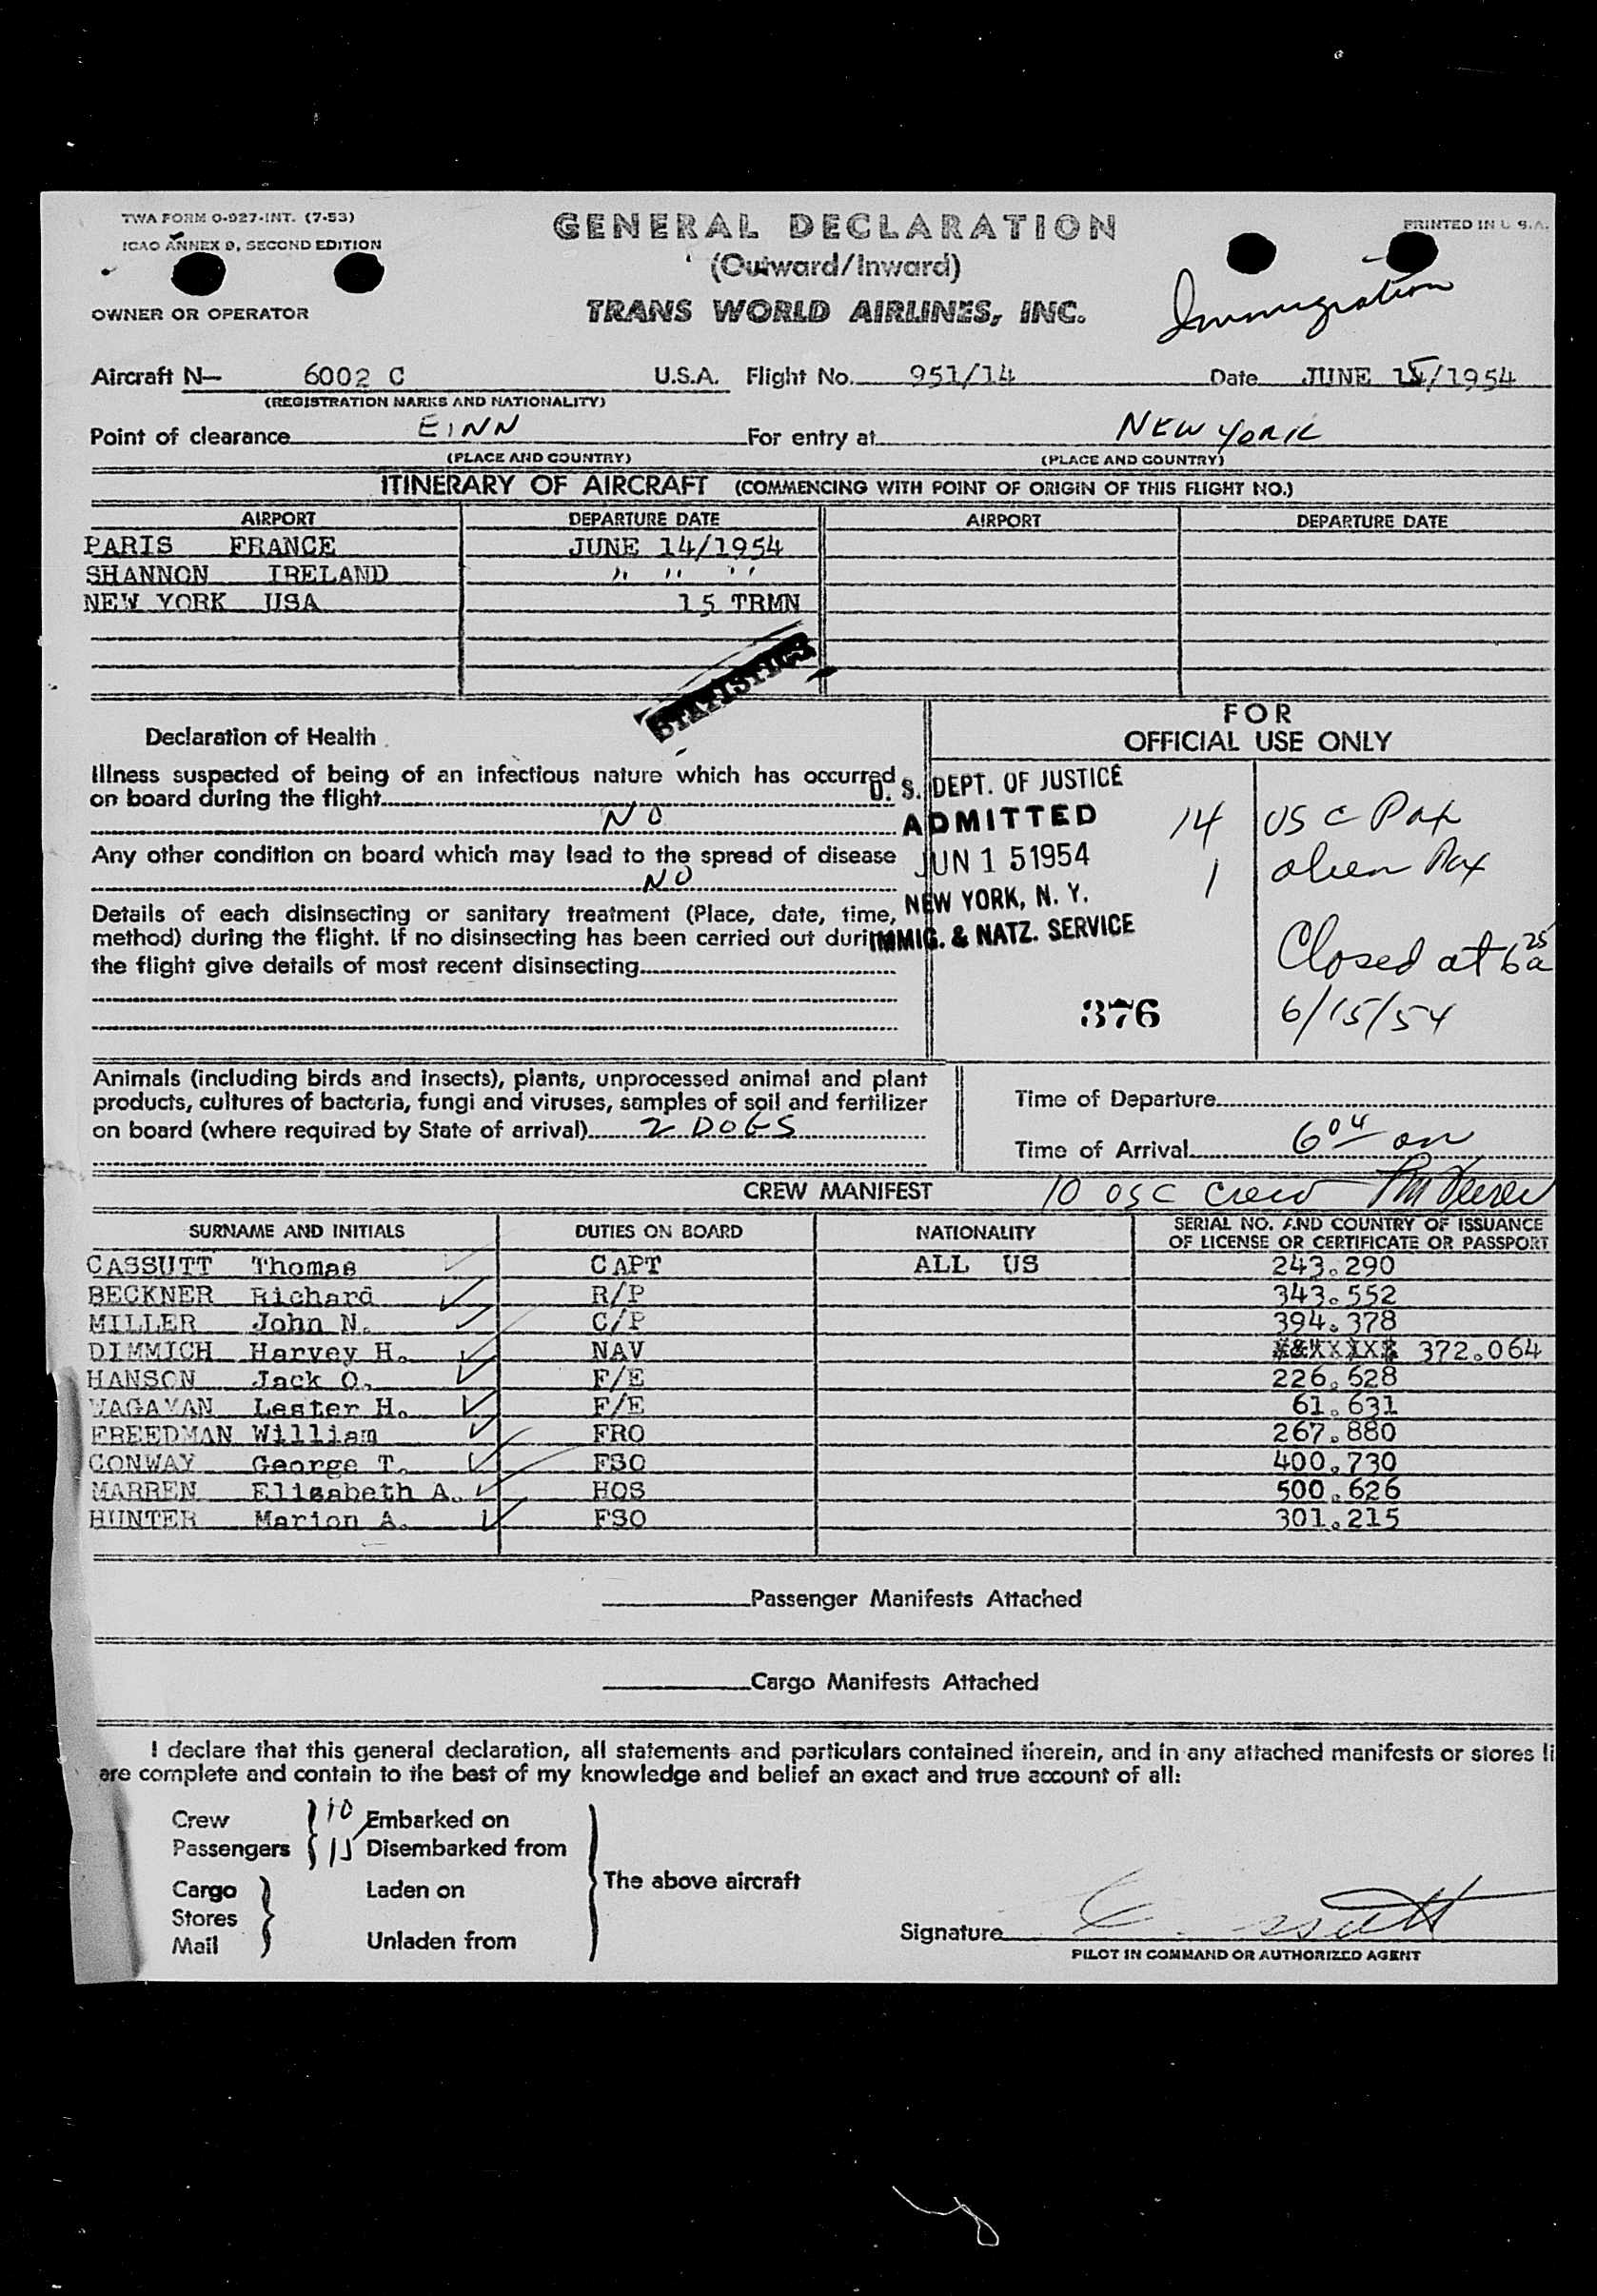 TWA FORM O-927-INT. (7-53)
ICAO ANNEX 9, SECOND EDITION
GENERAL DECLARATION
PRINTED IN U.S.A.
(Outward/Inward)
OWNER OR OPERATOR
TRANS WORLD AIRLINES, INC.
Immigration
Aircraft N— 6002 C U.S.A. Flight No. 951/14 Date JUNE 15/1954
(REGISTRATION MARKS AND NATIONALITY)
Point of clearance EINN For entry at NEW YORK
(PLACE AND COUNTRY) (PLACE AND COUNTRY)
ITINERARY OF AIRCRAFT (COMMENCING WITH POINT OF ORIGIN OF THIS FLIGHT NO.)
AIRPORT DEPARTURE DATE AIRPORT DEPARTURE DATE
PARIS FRANCE JUNE 14/1954
SHANNON IRELAND " " "
NEW YORK USA 15 TRMN
STATISTICS
FOR
OFFICIAL USE ONLY
Declaration of Health
Illness suspected of being of an infectious nature which has occurred
on board during the flight
NO
Any other condition on board which may lead to the spread of disease
NO
Details of each disinsecting or sanitary treatment (Place, date, time,
method) during the flight. If no disinsecting has been carried out during
the flight give details of most recent disinsecting
U. S. DEPT. OF JUSTICE
ADMITTED
JUN 15 1954
NEW YORK, N. Y.
IMMIG. & NATZ. SERVICE
376
14 USC Pax
1 alien Pax
Closed at 6 25 a
6/15/54
Animals (including birds and insects), plants, unprocessed animal and plant
products, cultures of bacteria, fungi and viruses, samples of soil and fertilizer
on board (where required by State of arrival) 2 DOGS
Time of Departure
Time of Arrival 6 04 am
CREW MANIFEST 10 USC Crew
SURNAME AND INITIALS DUTIES ON BOARD NATIONALITY SERIAL NO. AND COUNTRY OF ISSUANCE
OF LICENSE OR CERTIFICATE OR PASSPORT
CASSUTT Thomas CAPT ALL US 243.290
BECKNER Richard R/P 343.552
MILLER John N. C/P 394.378
DIMMICH Harvey H. NAV 372.064
HANSON Jack O. F/E 226.628
Lester H. F/E 61.631
FREEDMAN William FRO 267.880
CONWAY George T. FSO 400.730
MARREN Elisabeth A. HOS 500.626
HUNTER Marion A. FSO 301.215
Passenger Manifests Attached
Cargo Manifests Attached
I declare that this general declaration, all statements and particulars contained therein, and in any attached manifests or stores li
are complete and contain to the best of my knowledge and belief an exact and true account of all:
Crew 10 Embarked on
Passengers 15 Disembarked from
Cargo Laden on
Stores
Mail Unladen from
The above aircraft
Signature
PILOT IN COMMAND OR AUTHORIZED AGENT